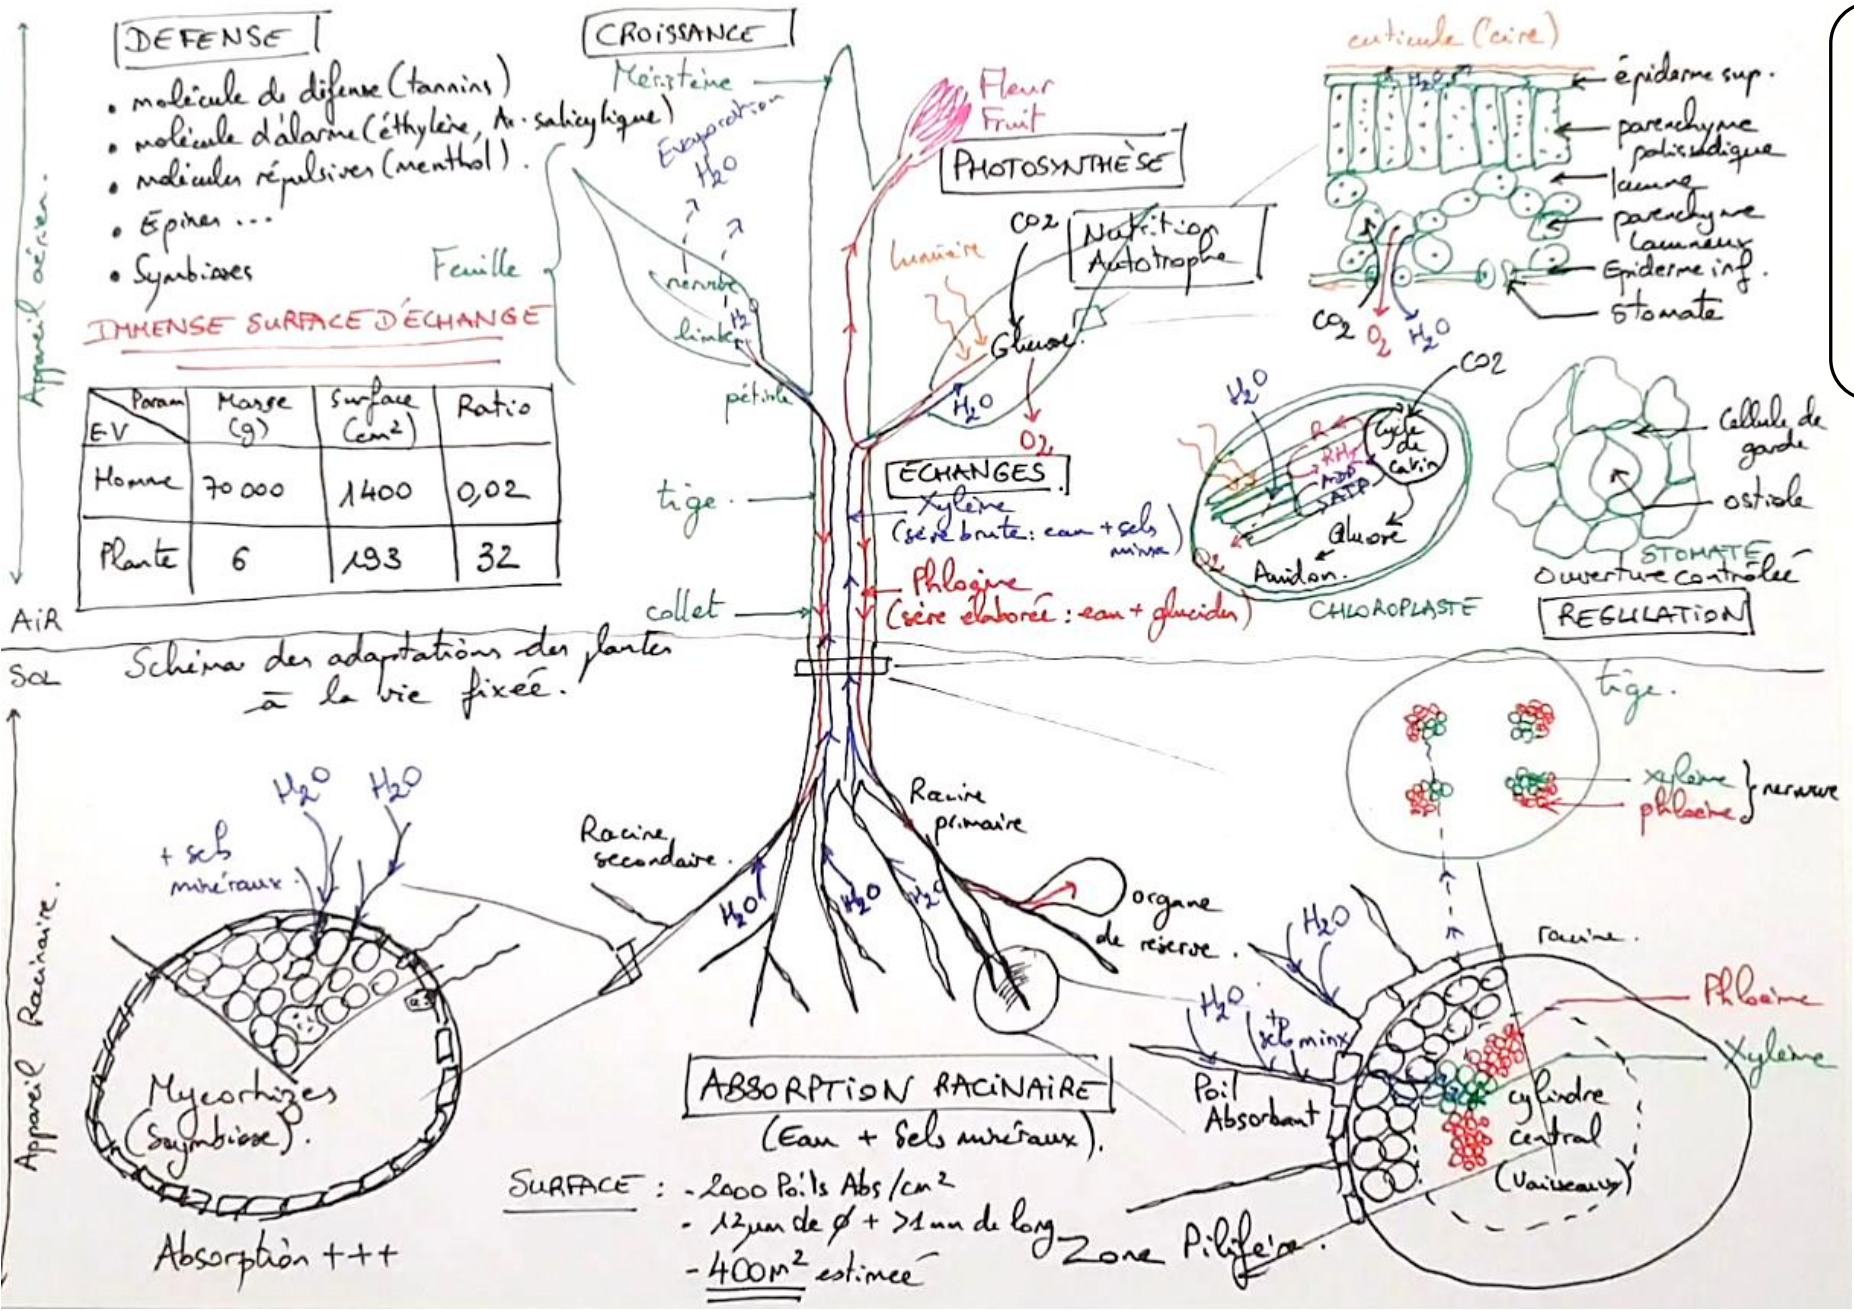 DEFENSE
• molécule de défense (tannins)
• molécule d'alarme (éthylène, Ac. salicylique)
• molécules répulsives (menthol).
• Epines ...
• Symbioses
IMMENSE SURFACE D'ÉCHANGE
Param
EV
Masse (g)
Surface (cm²)
Ratio
Homme 70 000 1400 0,02
Plante 6 193 32
Appareil aérien.
AIR
SOL
Schéma des adaptations des plantes
à la vie fixée.
Appareil Racinaire.
CROISSANCE
Méristème
Evaporation
H2O
Feuille
nervure
H2O
limbe
pétiole
tige.
collet
Fleur
Fruit
PHOTOSYNTHÈSE
CO2
Nutrition
Autotrophe
lumière
Glucose.
H2O
O2
ECHANGES
Xylème
(sève brute : eau + sels
minx)
Phloème
(sève élaborée : eau + glucides)
cuticule (cire)
H2O
épiderme sup.
parenchyme
palissadique
lacune
parenchyme
lacuneux
Epiderme inf.
Stomate
CO2
O2
H2O
CO2
H2O
R
RH2
ADP
ATP
Cycle
de
Calvin
Glucose
Amidon.
O2
CHLOROPLASTE
Cellule de
garde
ostiole
STOMATE
Ouverture contrôlée
REGULATION
tige.
xylème
phloème
nervure
H2O
H2O
+ sels
minéraux
Mycorhizes
(Symbiose).
Absorption +++
Racine
secondaire.
Racine
primaire
H2O
H2O
H2O
organe
de réserve.
ABSORPTION RACINAIRE
(Eau + Sels minéraux).
SURFACE : - 2000 Poils Abs/cm²
- 12µm de ø + >1mm de long
- 400m² estimée
H2O
H2O
+
sels minx
Poil
Absorbant
Zone Pilifère.
racine.
Phloème
Xylème
cylindre
central
(Vaisseaux)